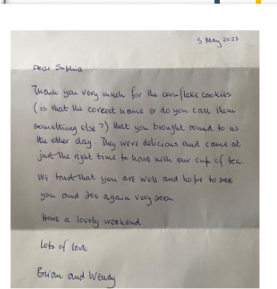 5 May 2023
Dear Sophia
Thank you very much for the cornflake cookies
(is that the correct name or do you call them
something else?) that you brought round to us
the other day. They were delicious and came at
just the right time to have with our cup of tea
We trust that you are well and hope to see
you and Joe again very soon
Have a lovely weekend
Lots of love
Brian and Wendy